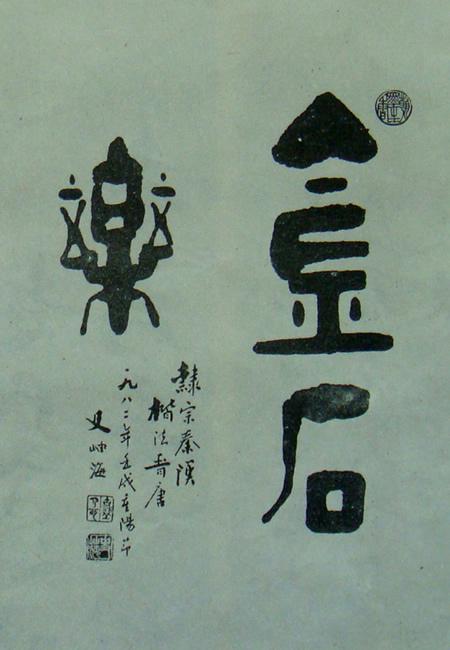 金石
樂
隸宗秦漢
楷法晉唐
一九八二年壬戌重陽節
史岫海